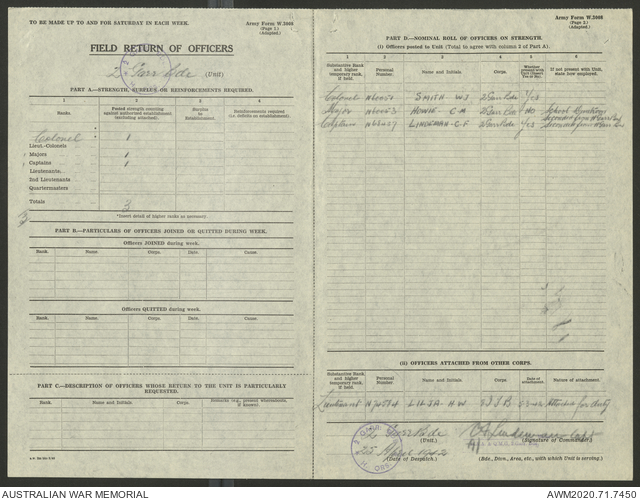 TO BE MADE UP TO AND FOR SATURDAY IN EACH WEEK.
Army Form W.3008
(Page 1.)
(Adapted.)
FIELD RETURN OF OFFICERS
2 Garr Bde (Unit)
PART A—STRENGTH, SURPLUS OR REINFORCEMENTS REQUIRED.
1 2 3 4
Rank. Posted strength counting against authorised establishment (excluding attached). Surplus to Establishment. Reinforcements required (i.e. deficits on establishment).
Colonel 1
Lieut.-Colonels
Majors 1
Captains 1
Lieutenants
2nd Lieutenants
Quartermasters
Totals 3
*Insert detail of higher ranks as necessary.
PART B.—PARTICULARS OF OFFICERS JOINED OR QUITTED DURING WEEK.
Officers JOINED during week.
Rank. Name. Corps. Date. Cause.
Officers QUITTED during week.
Rank. Name. Corps. Date. Cause.
PART C.—DESCRIPTION OF OFFICERS WHOSE RETURN TO THE UNIT IS PARTICULARLY REQUESTED.
Rank. Name and Initials. Corps. Remarks (e.g., present whereabouts, if known).
Army Form W.3008
(Page 2.)
(Adapted.)
PART D.—NOMINAL ROLL OF OFFICERS ON STRENGTH.
(i) Officers posted to Unit (Total to agree with column 2 of Part A).
1 2 3 4 5 6
Substantive Rank and higher temporary rank, if held. Personal Number. Name and Initials. Corps. Whether present with Unit (Insert Yes or No). If not present with Unit, state how employed.
Colonel SMITH W J 2 Garr Bde Yes
Major HOWIE C M 2 Garr Bde NO School
Captain LINDEMAN C F 2 Garr Bde Yes
(ii) OFFICERS ATTACHED FROM OTHER CORPS.
Substantive Rank and higher temporary rank, if held. Personal Number. Name and Initials. Corps. Date of attachment. Nature of attachment.
Lieutenant LILJA H W Attached for duty
2 Garr Bde
(Unit.)
(Signature of Commander.)
25 1942
(Date of Despatch.)
(Bde., Divn., Area, etc., with which Unit is serving.)
AUSTRALIAN WAR MEMORIAL
AWM2020.71.7450